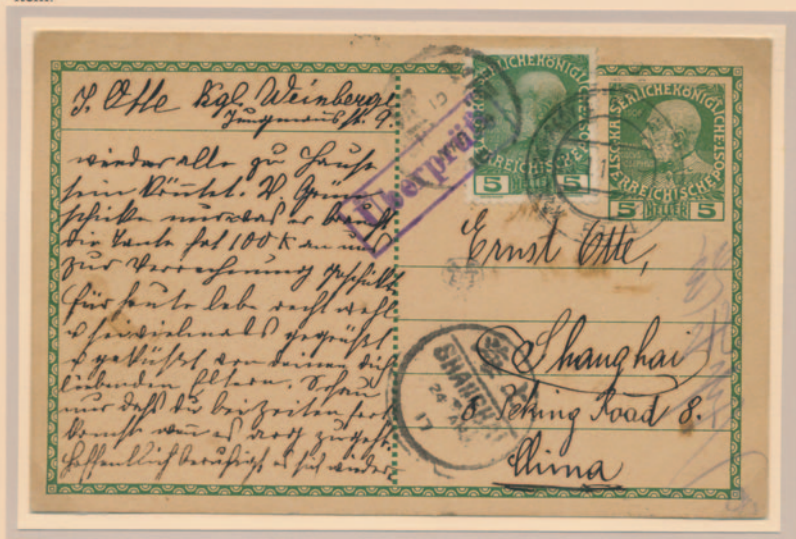 J. Otte Kgl. Weinberge
Jungmannstr. 9.
wieder alle zu Hause
sein könntet. V. Grün
schicke nur was er braucht
die Tante hat 100 K an uns
zur Verrechnung geschickt
für heute lebe recht wohl
u sei vielmals gegrüßt
u geküßt von deinen dich
liebenden Eltern. Schau
nur daß du beizeiten fort
kommst wenn es arg zugeht.
Hoffentlich beruhigt es sich wieder
Überprüft
KAISERLICHEKÖNIGLICHE
ÖSTERREICHISCHE POST
5 5
KAISERLICHEKÖNIGLICHE
ÖSTERREICHISCHE POST
5 HELLER 5
Ernst Otte,
Shanghai
8 Peking Road 8.
China
SHANGHAI
24
17